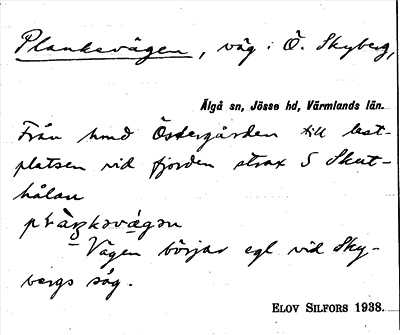 Planksvägen, väg i Ö. Skyberg,
Älgå sn, Jösse hd, Värmlands län.
Från hmd Östergården till last-
platsen vid fjorden strax S Skut-
hålan
Vägen börjar egl vid Sky-
bergs såg.
ELOV SILFORS 1938.